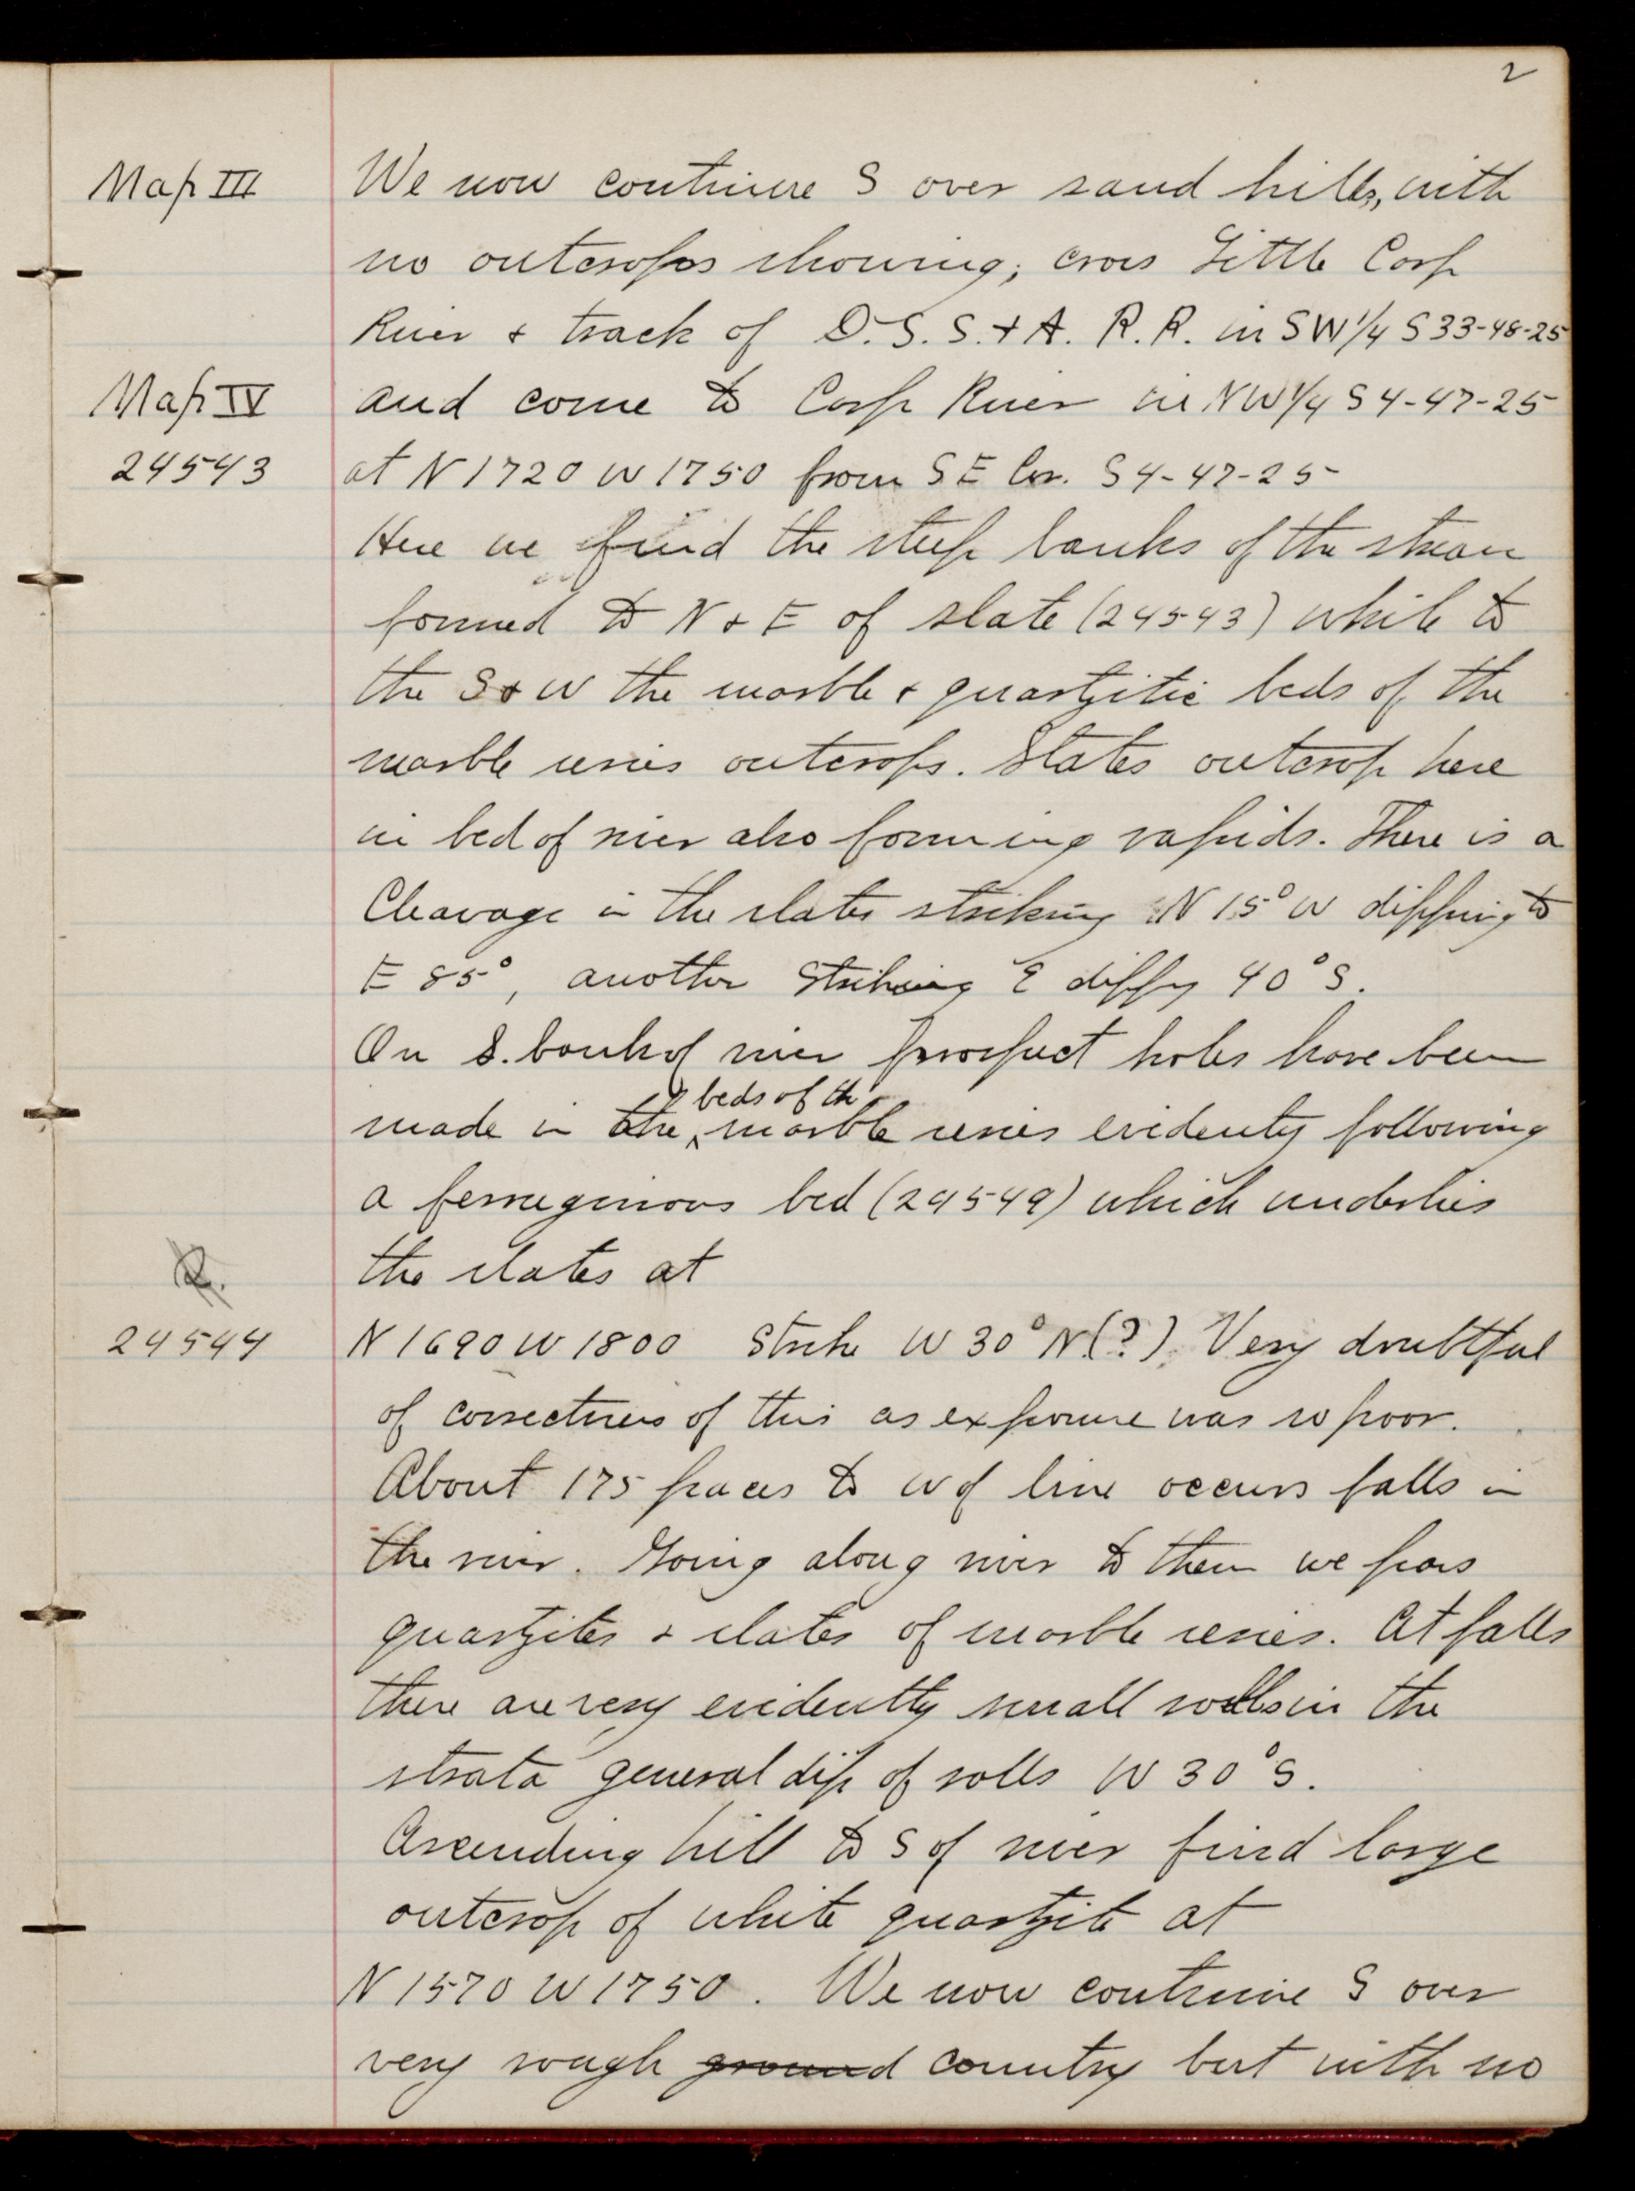 2
Map III
We now continue S over sand hills, with
no outcrops showing; cross Little Carp
River & track of D. S. S. & A. R. R. in SW 1/4 S 33-48-25
Map IV
and come to Carp River in NW 1/4 S 4-47-25
24543
at N 1720 W 1750 from S E Cor. S 4-47-25
Here we find the steep banks of the stream
formed to N & E of slate (24543) while to
the S & W the marble & quartzitic beds of the
marble series outcrops. Slates outcrop here
in bed of river also forming rapids. There is a
Cleavage in the slates striking N 15° W dipping to
E 85°, another striking E dippg 40° S.
On S. bank of river prospect holes have been
beds of the
made in the marble series evidently following
a ferruginous bed (24544) which underlies
the slates at
R.
24544
N 1690 W 1800 Strike W 30° N (?). Very doubtful
of correctness of this as exposure was so poor.
About 175 paces to W of line occurs falls in
the river. Going along river to them we pass
quartzites & slates of marble series. At falls
there are very evidently small rolls in the
strata general dip of rolls W 30° S.
Ascending hill to S of river find large
outcrop of white quartzite at
N 1570 W 1750. We now continue S over
very rough ground country but with no